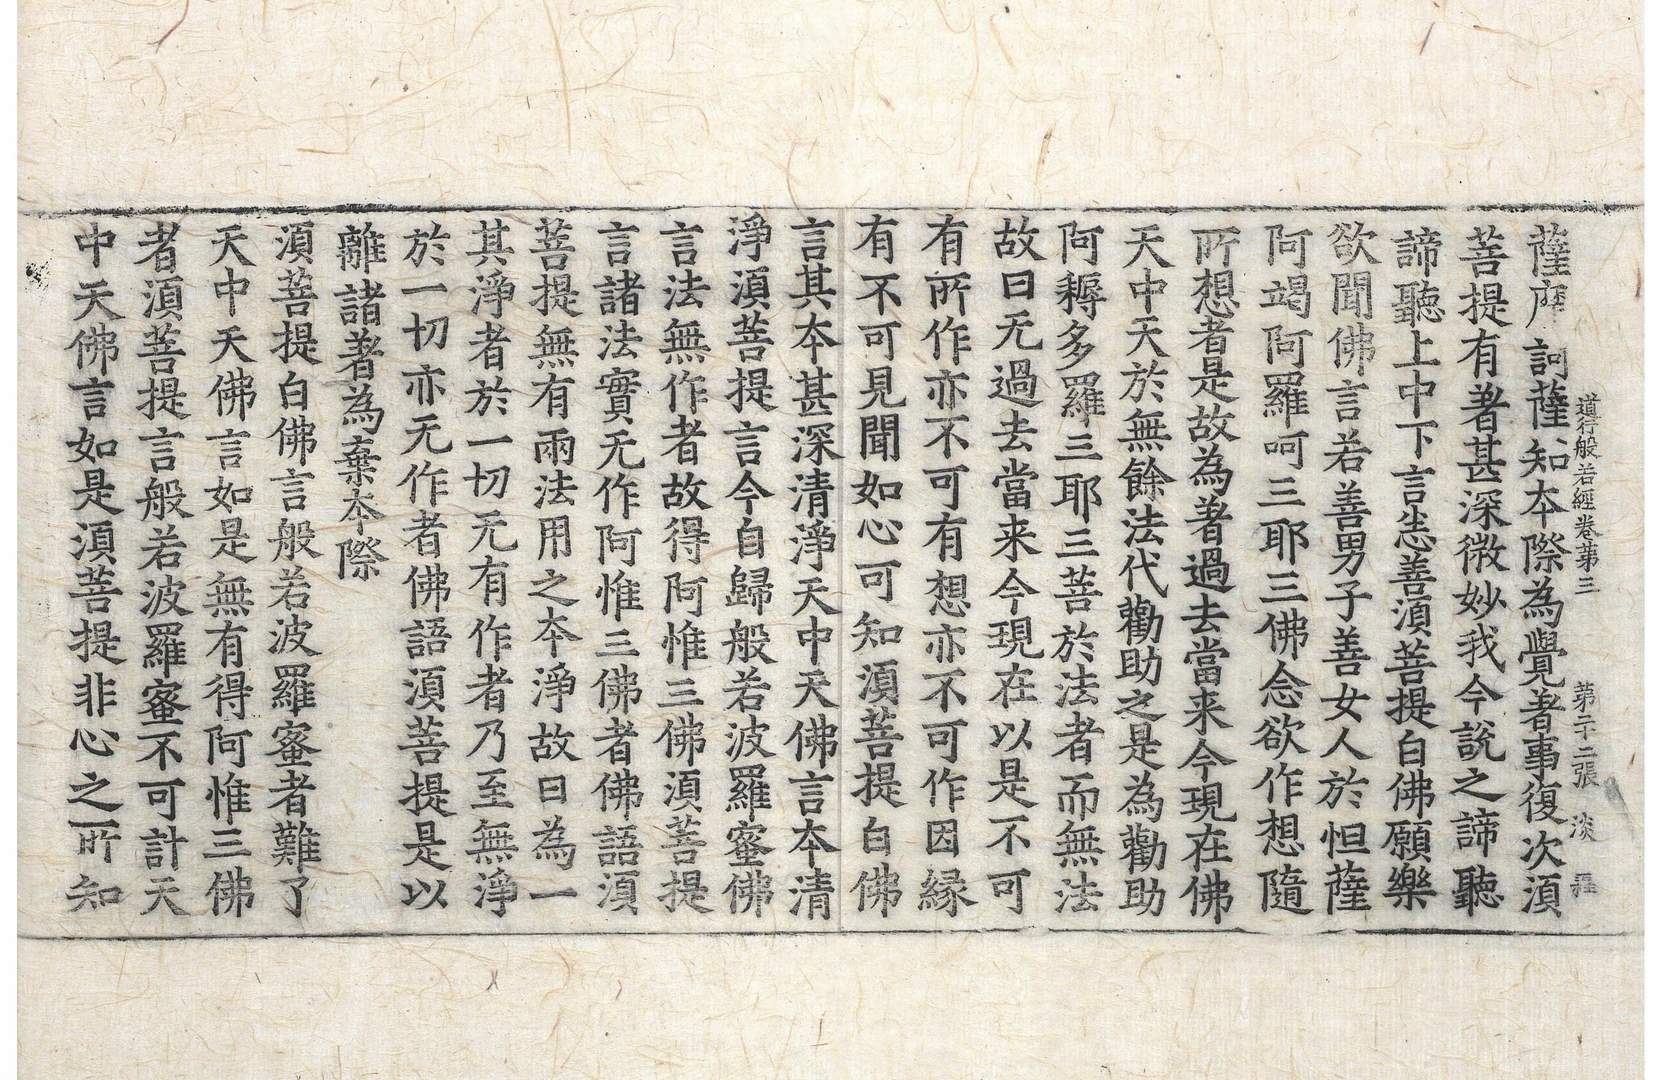 道行般若經卷第三 第二十二張 淡
薩摩訶薩知本際為覺著事復次須
菩提有著甚深微妙我今說之諦聽
諦聽上中下言悉善須菩提白佛願樂
欲聞佛言若善男子善女人於怛薩
阿竭阿羅呵三耶三佛念欲作想隨
所想者是故為著過去當来今現在佛
天中天於無餘法代勸助之是為勸助
阿耨多羅三耶三菩於法者而無法
故曰无過去當来今現在以是不可
有所作亦不可有想亦不可作因緣
有不可見聞如心可知須菩提白佛
言其本甚深清淨天中天佛言本清
淨須菩提言今自歸般若波羅蜜佛
言法無作者故得阿惟三佛須菩提
言諸法實无作阿惟三佛者佛語須
菩提無有兩法用之本淨故曰為一
其淨者於一切无有作者乃至無淨
於一切亦无作者佛語須菩提是以
離諸著為棄本際
須菩提白佛言般若波羅蜜者難了
天中天佛言如是無有得阿惟三佛
者須菩提言般若波羅蜜不可計天
中天佛言如是須菩提非心之所知